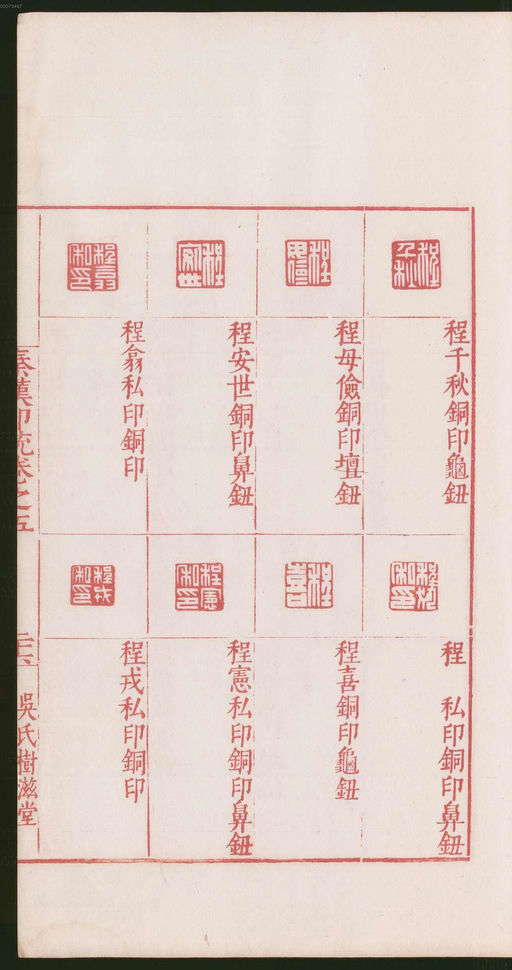 程千秋銅印龜鈕
程毋儉銅印壇鈕
程安世銅印鼻鈕
程翕私印銅印
程　私印銅印鼻鈕
程喜銅印龜鈕
程憲私印銅印鼻鈕
程戎私印銅印
秦漢印統卷之五
吳氏樹滋堂
00073447